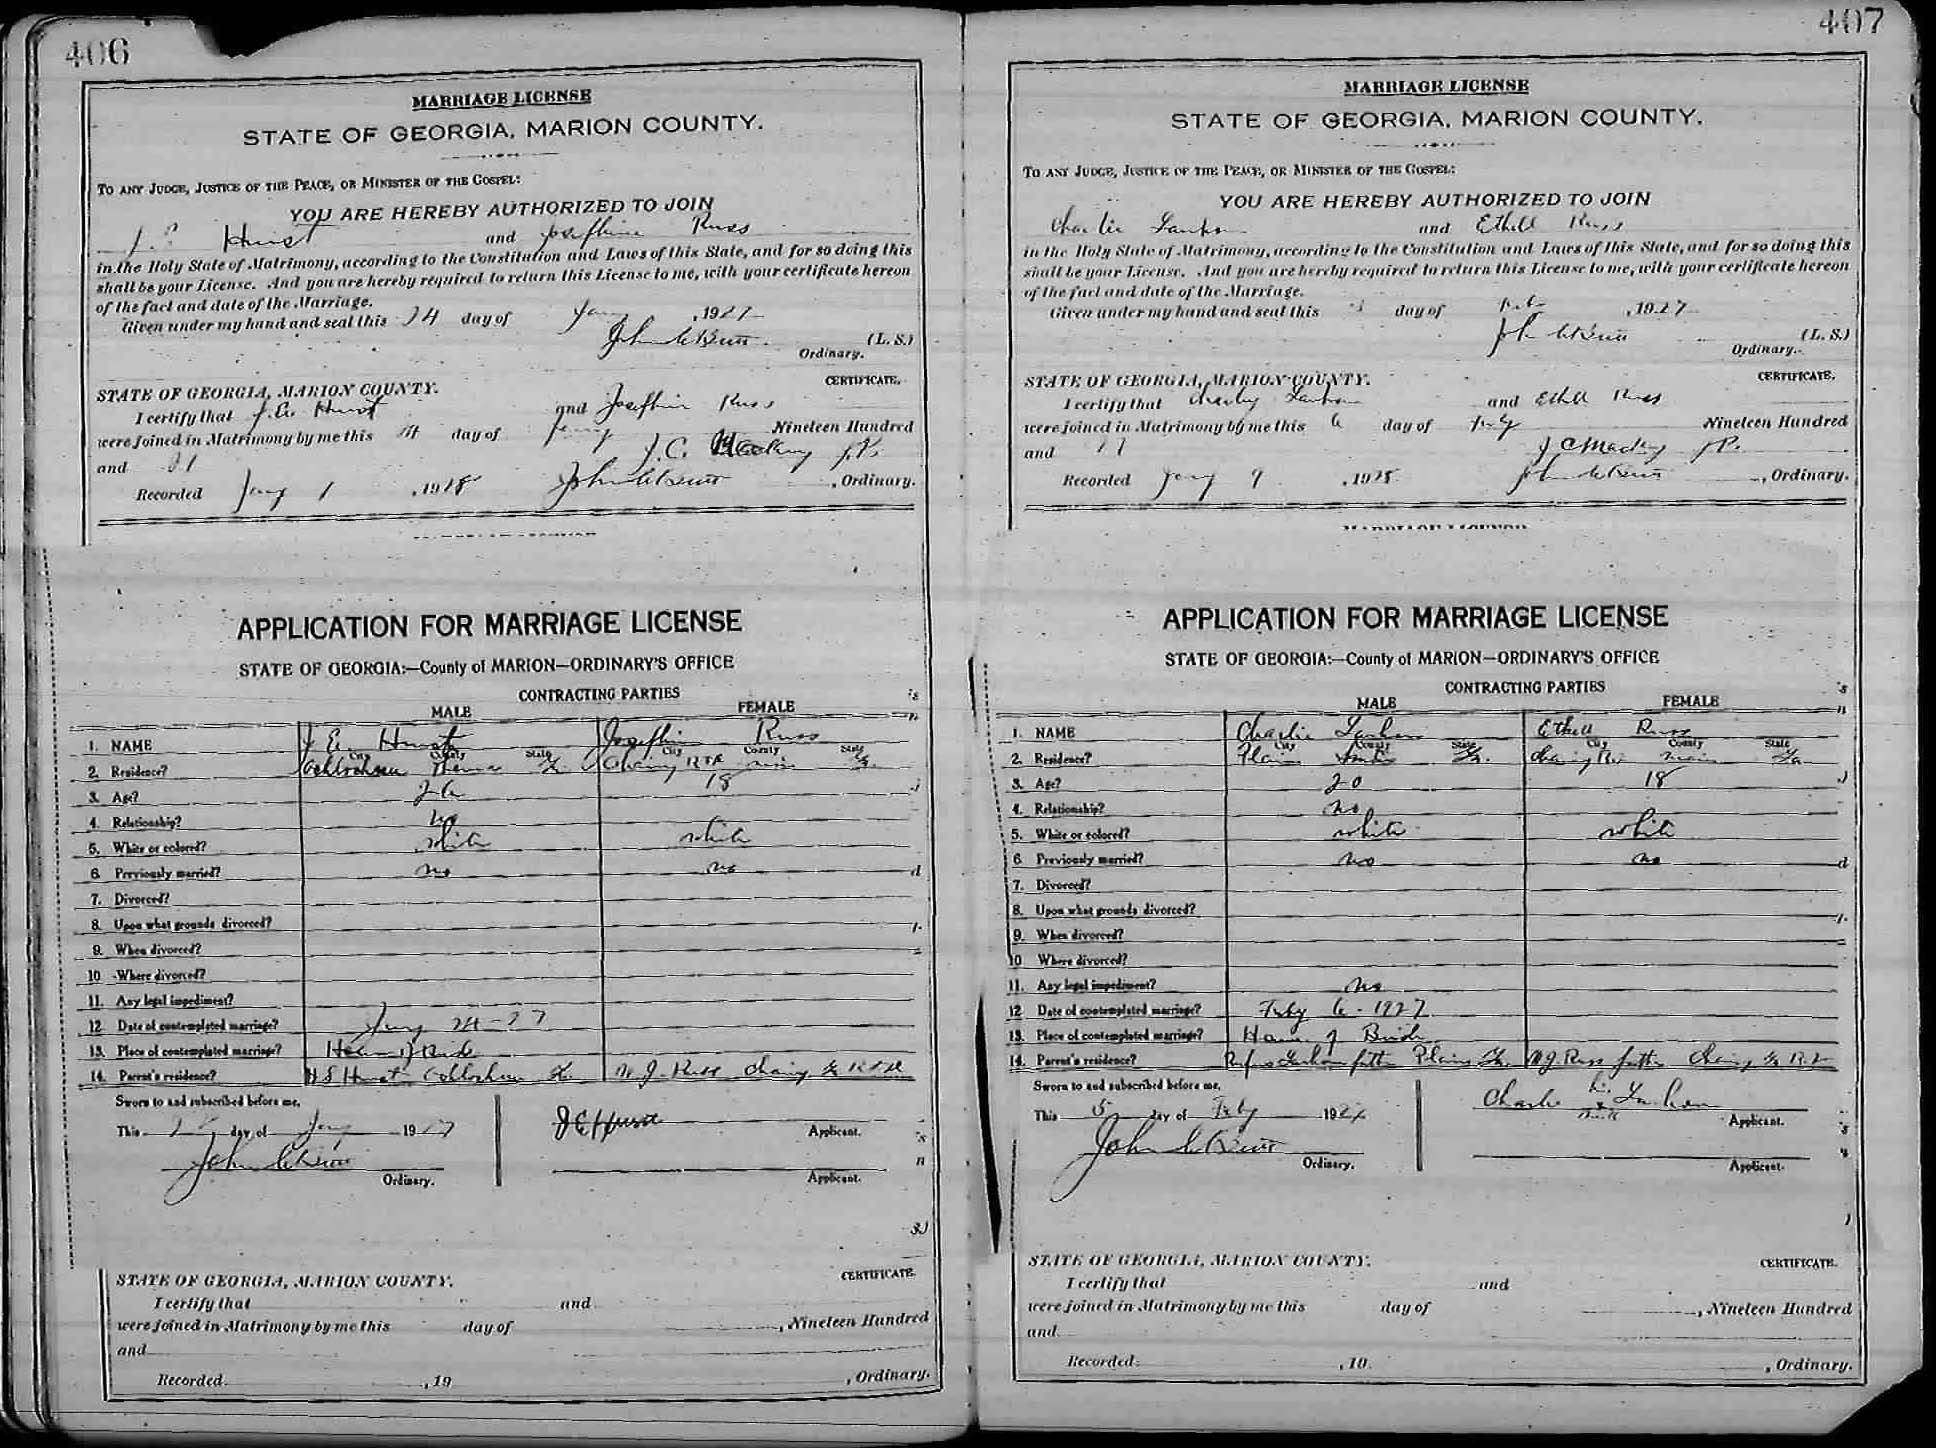 406
MARRIAGE LICENSE
STATE OF GEORGIA, MARION COUNTY.
TO ANY JUDGE, JUSTICE OF THE PEACE, OR MINISTER OF THE GOSPEL:
YOU ARE HEREBY AUTHORIZED TO JOIN
Hurst and Josephine Russ
in the Holy State of Matrimony, according to the Constitution and Laws of this State, and for so doing this
shall be your License. And you are hereby required to return this License to me, with your certificate hereon
of the fact and date of the Marriage.
Given under my hand and seal this 24 day of Jany, 1927
John (L. S.)
Ordinary.
CERTIFICATE.
STATE OF GEORGIA, MARION COUNTY.
I certify that J. E. Hurst and Josephin Russ
were joined in Matrimony by me this 24 day of Jany Nineteen Hundred
and J. C.
Recorded Jany 1, 1928 John, Ordinary.
APPLICATION FOR MARRIAGE LICENSE
STATE OF GEORGIA:—County of MARION—ORDINARY'S OFFICE
CONTRACTING PARTIES
MALE FEMALE
1. NAME J E. Hurst Josephin Russ
City County State City County State
2. Residence? Ga.
3. Age? 26 18
4. Relationship? no
5. White or colored? white white
6. Previously married? no no
7. Divorced?
8. Upon what grounds divorced?
9. When divorced?
10. Where divorced?
11. Any legal impediment?
12 Date of contemplated marriage? Jany 24-27
13. Place of contemplated marriage? Home of Bride
14. Parent's residence? Hurst W. J. Russ
Sworn to and subscribed before me,
This day of Jany 1927 J E Hurst Applicant.
John
Ordinary. Applicant.
STATE OF GEORGIA, MARION COUNTY. CERTIFICATE.
I certify that and
were joined in Matrimony by me this day of , Nineteen Hundred
and
Recorded , 19 , Ordinary.
407
MARRIAGE LICENSE
STATE OF GEORGIA, MARION COUNTY.
TO ANY JUDGE, JUSTICE OF THE PEACE, OR MINISTER OF THE GOSPEL:
YOU ARE HEREBY AUTHORIZED TO JOIN
Charlie and Ethell Russ
in the Holy State of Matrimony, according to the Constitution and Laws of this State, and for so doing this
shall be your License. And you are hereby required to return this License to me, with your certificate hereon
of the fact and date of the Marriage.
Given under my hand and seal this day of Feb, 1927
John (L. S.)
Ordinary.
CERTIFICATE.
STATE OF GEORGIA, MARION COUNTY.
I certify that Charley and Ethell Russ
were joined in Matrimony by me this 6 day of Feby Nineteen Hundred
and 27 J C
Recorded Jany 9, 1928 John, Ordinary.
MARRIAGE LICENSE
APPLICATION FOR MARRIAGE LICENSE
STATE OF GEORGIA:—County of MARION—ORDINARY'S OFFICE
CONTRACTING PARTIES
MALE FEMALE
1. NAME Charlie Ethell Russ
City County State City County State
2. Residence? Plains Ga. Ga
3. Age? 20 18
4. Relationship? no
5. White or colored? white white
6 Previously married? no no
7. Divorced?
8. Upon what grounds divorced?
9. When divorced?
10 Where divorced?
11. Any legal impediment? no
12 Date of contemplated marriage? Feby 6-1927
13. Place of contemplated marriage? Home of Bride
14. Parent's residence? Rufus father Plains Ga. W J. Russ father Ga
Sworn to and subscribed before me,
This 5 day of Feby 1927 Charlie his x mark Applicant.
John
Ordinary. Applicant.
STATE OF GEORGIA, MARION COUNTY. CERTIFICATE.
I certify that and
were joined in Matrimony by me this day of , Nineteen Hundred
and
Recorded , 19 , Ordinary.